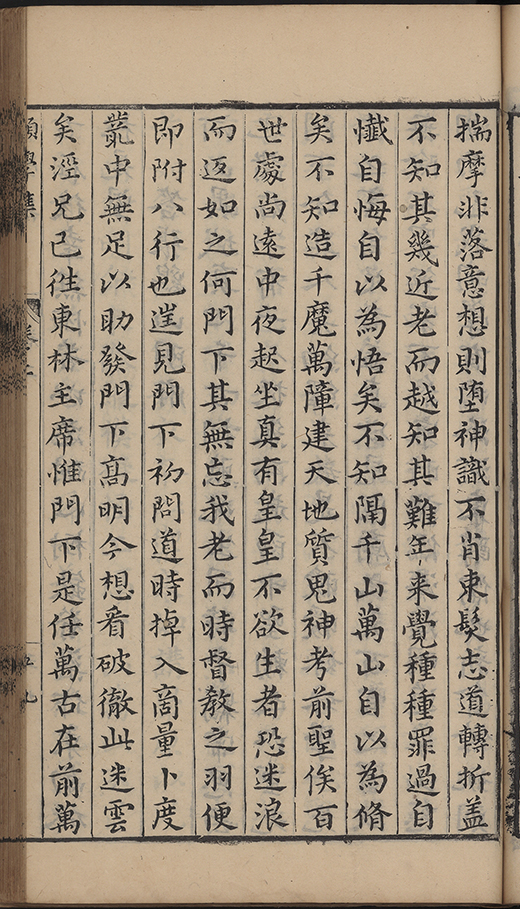 揣摩非落意想則堕神識不肖束髮志道轉折盖
不知其幾近老而越知其難年來覺種種罪過自
懴自悔自以為悟矣不知隔千山萬山自以為脩
矣不知造千魔萬障建天地質鬼神考前聖俟百
世處尚遠中夜起坐真有皇皇不欲生者恐迷浪
而返如之何門下其無忘我老而時督教之羽便
即附八行也逕見門下初問道時掉入商量卜度
叢中無足以助發門下髙明今想看破徹此迷雲
矣涇兄已徃東林主席惟門下是任萬古在前萬
願學集